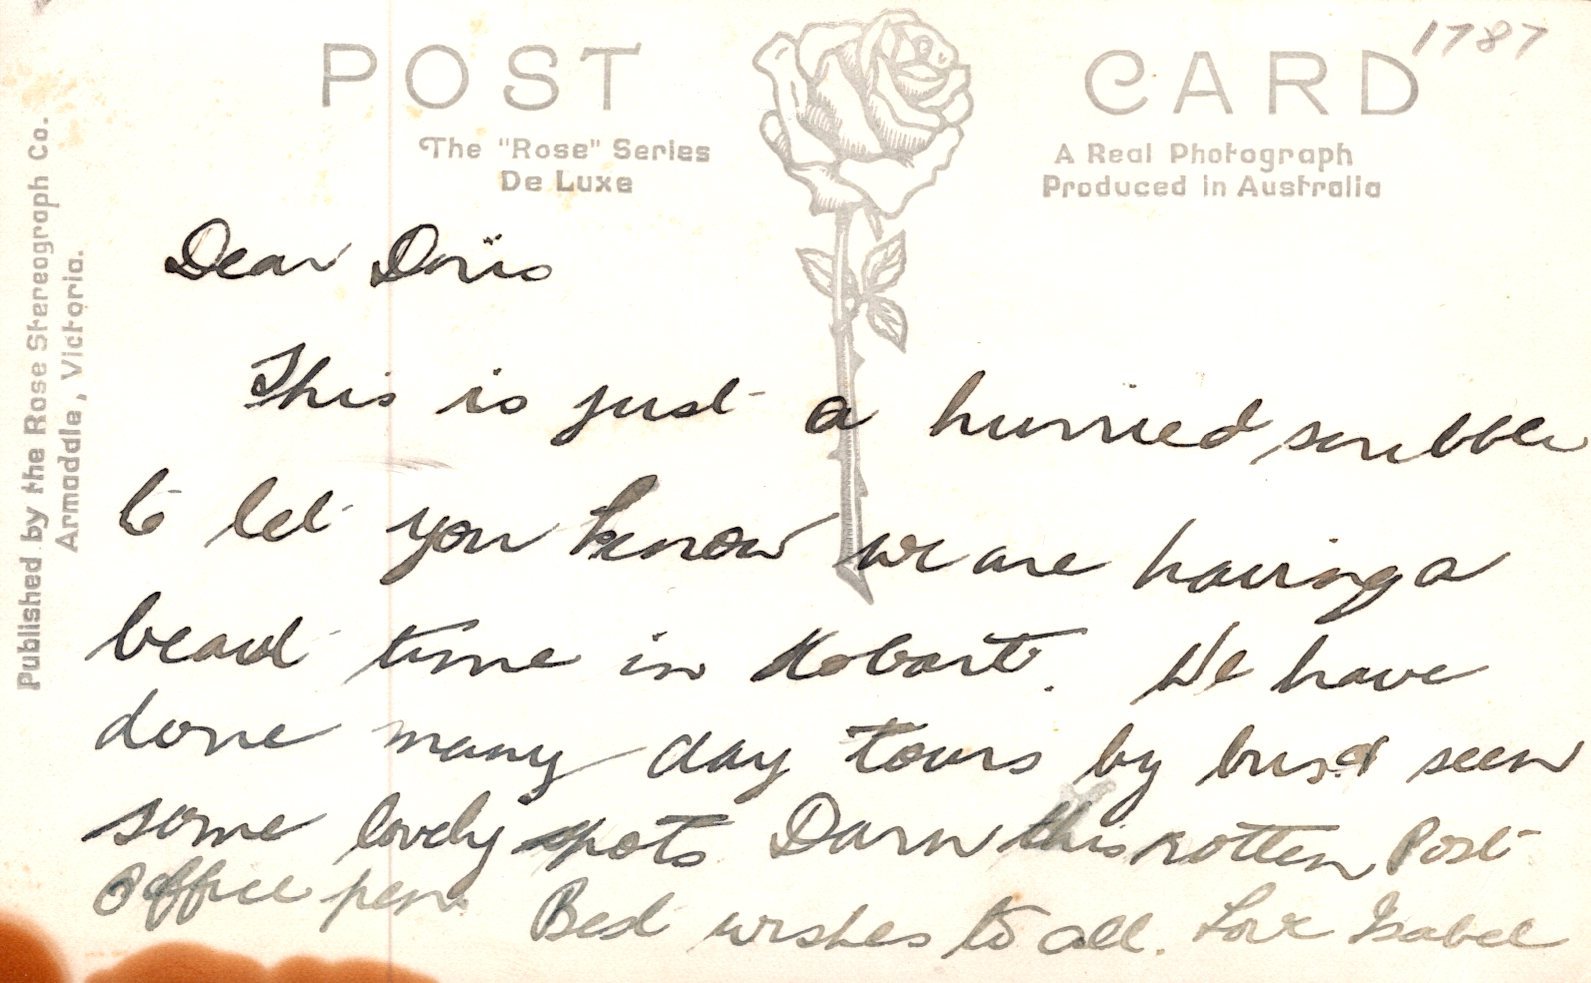 1787
POST CARD
The "Rose" Series
De Luxe
A Real Photograph
Produced in Australia
Published by the Rose Stereograph Co.
Armadale, Victoria.
Dear Doris
This is just a hurried scribble
to let you know we are having a
beaut time in Hobart. We have
done many day tours by bus & seen
some lovely spots Darn this rotten Post
Office pen. Best wishes to all. Love Isabel